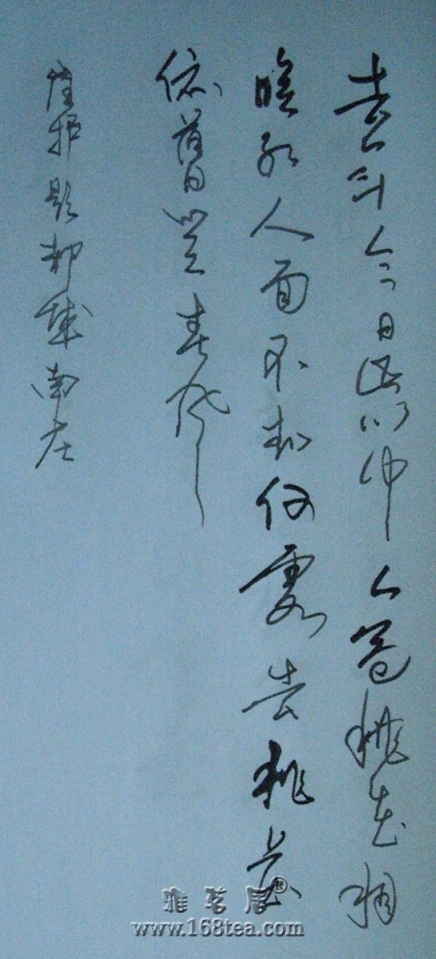 去年今日此门中人面桃花相
映红人面不知何處去桃花
依舊笑春风
崔护题都城南庄
雅茗居®
www.168tea.com